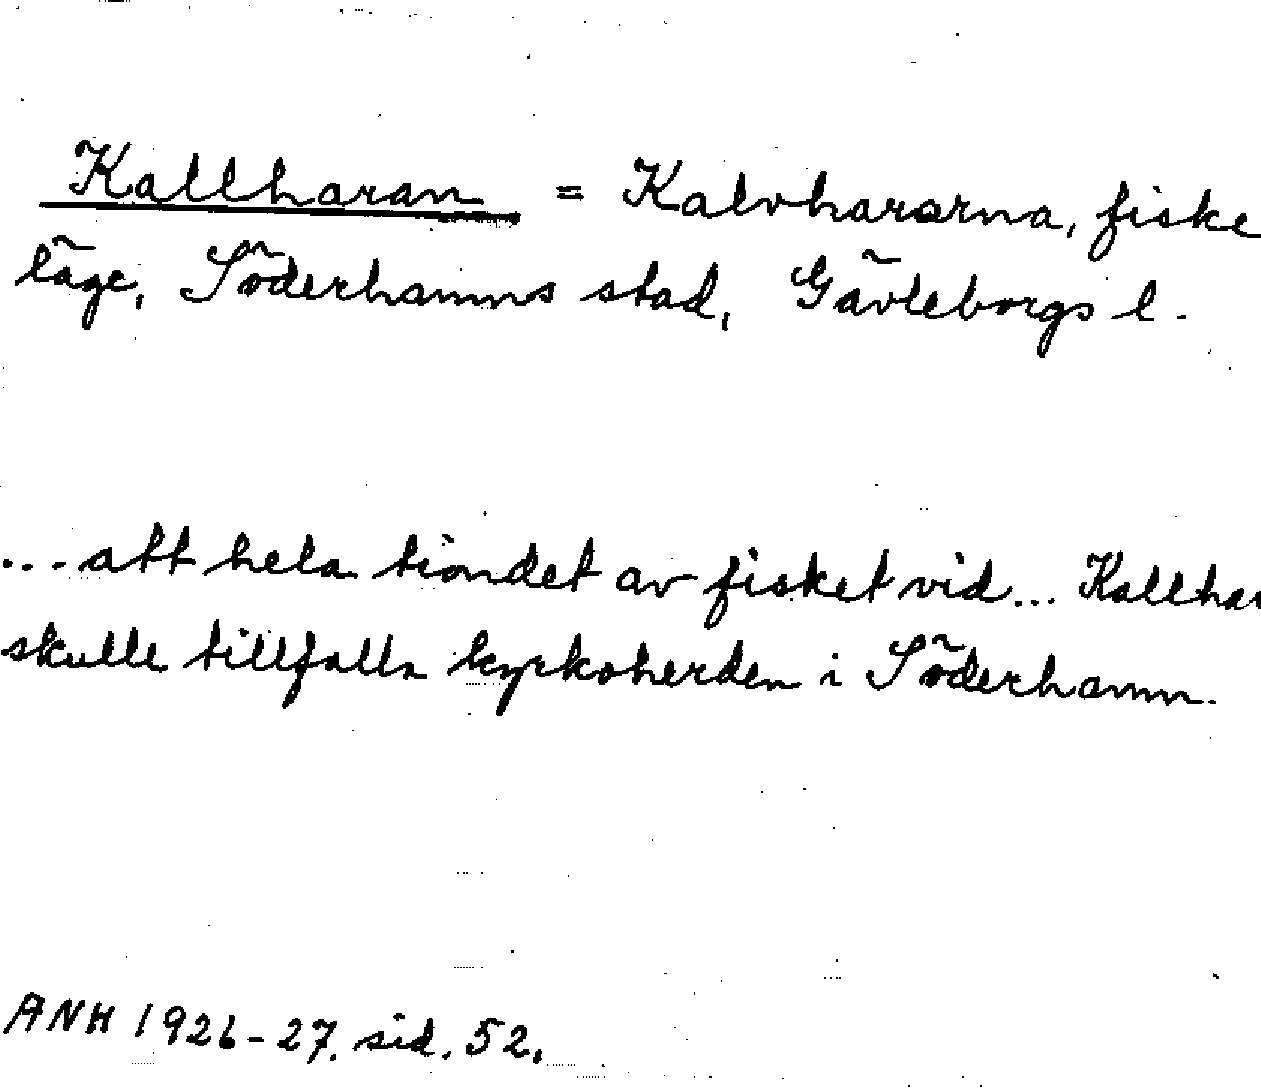 Kallharan = Kalvhararna, fiske
läge, Söderhamns stad, Gävleborgs l.
... att hela tiondet av fisket vid... Kallhar
skulle tillfalla kyrkoherden i Söderhamn.
ANH 1926-27. sid. 52.